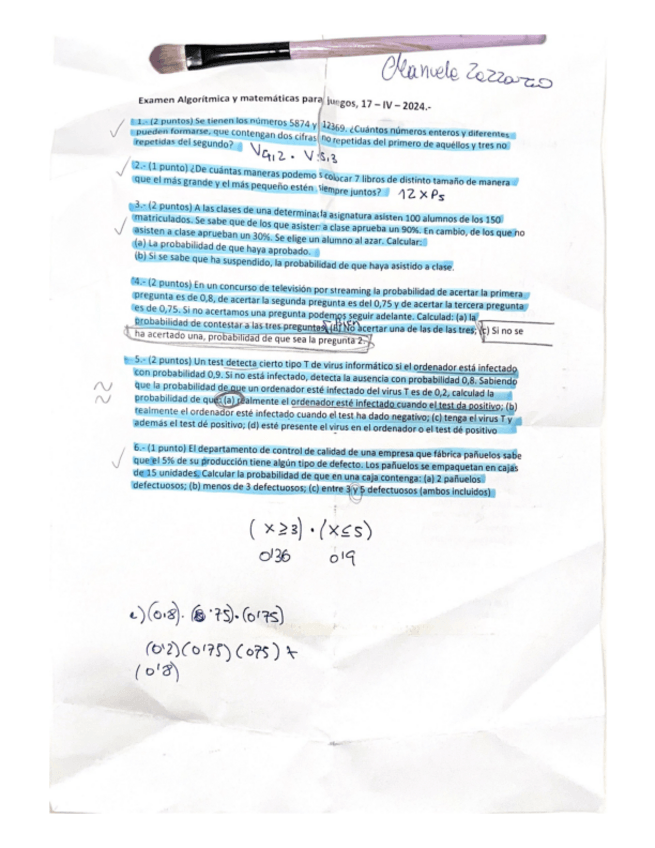 Manuela
Examen Algorítmica y matemáticas para juegos, 17 – IV – 2024.-
1.- (2 puntos) Se tienen los números 5874 y 12369. ¿Cuántos números enteros y diferentes
pueden formarse, que contengan dos cifras no repetidas del primero de aquéllos y tres no
repetidas del segundo?
2.- (1 punto) ¿De cuántas maneras podemos colocar 7 libros de distinto tamaño de manera
que el más grande y el más pequeño estén siempre juntos? 12 x P5
3.- (2 puntos) A las clases de una determinada asignatura asisten 100 alumnos de los 150
matriculados. Se sabe que de los que asisten a clase aprueba un 90%. En cambio, de los que no
asisten a clase aprueban un 30%. Se elige un alumno al azar. Calcular:
(a) La probabilidad de que haya aprobado.
(b) Si se sabe que ha suspendido, la probabilidad de que haya asistido a clase.
4.- (2 puntos) En un concurso de televisión por streaming la probabilidad de acertar la primera
pregunta es de 0,8, de acertar la segunda pregunta es del 0,75 y de acertar la tercera pregunta
es de 0,75. Si no acertamos una pregunta podemos seguir adelante. Calculad: (a) la
probabilidad de contestar a las tres preguntas bien; (b) No acertar una de las de las tres; (c) Si no se
ha acertado una, probabilidad de que sea la pregunta 2.
5.- (2 puntos) Un test detecta cierto tipo T de virus informático si el ordenador está infectado
con probabilidad 0,9. Si no está infectado, detecta la ausencia con probabilidad 0,8. Sabiendo
que la probabilidad de que un ordenador esté infectado del virus T es de 0,2, calculad la
probabilidad de que: (a) realmente el ordenador esté infectado cuando el test da positivo; (b)
realmente el ordenador esté infectado cuando el test ha dado negativo; (c) tenga el virus T y
además el test dé positivo; (d) esté presente el virus en el ordenador o el test dé positivo
6.- (1 punto) El departamento de control de calidad de una empresa que fábrica pañuelos sabe
que el 5% de su producción tiene algún tipo de defecto. Los pañuelos se empaquetan en cajas
de 15 unidades. Calcular la probabilidad de que en una caja contenga: (a) 2 pañuelos
defectuosos; (b) menos de 3 defectuosos; (c) entre 3 y 5 defectuosos (ambos incluidos)
(x ≥ 3) · (x ≤ 5)
0'36 0'9
(0'8) · ('75) · (0'75)
(0'2) (0'75) (075) +
(0'8)